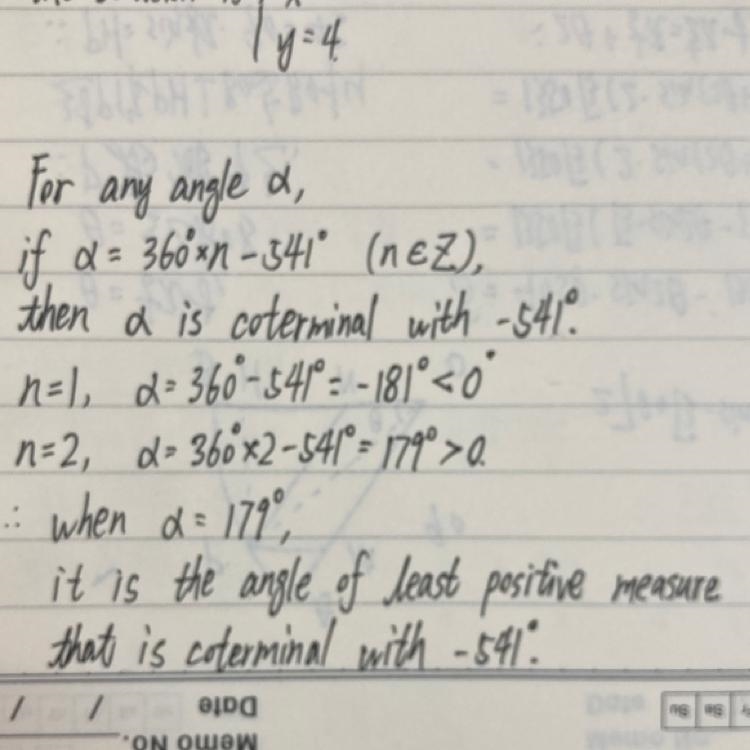 y=4.
For any angle α,
if α = 360°×n - 541° (n∈Z),
then α is coterminal with -541°.
n=1, α = 360° - 541° = -181° < 0°
n=2, α = 360°×2 - 541° = 179° > 0.
∴ when α = 179°,
it is the angle of least positive measure
that is coterminal with -541°.
/ / Date
Memo No.
Su Sa